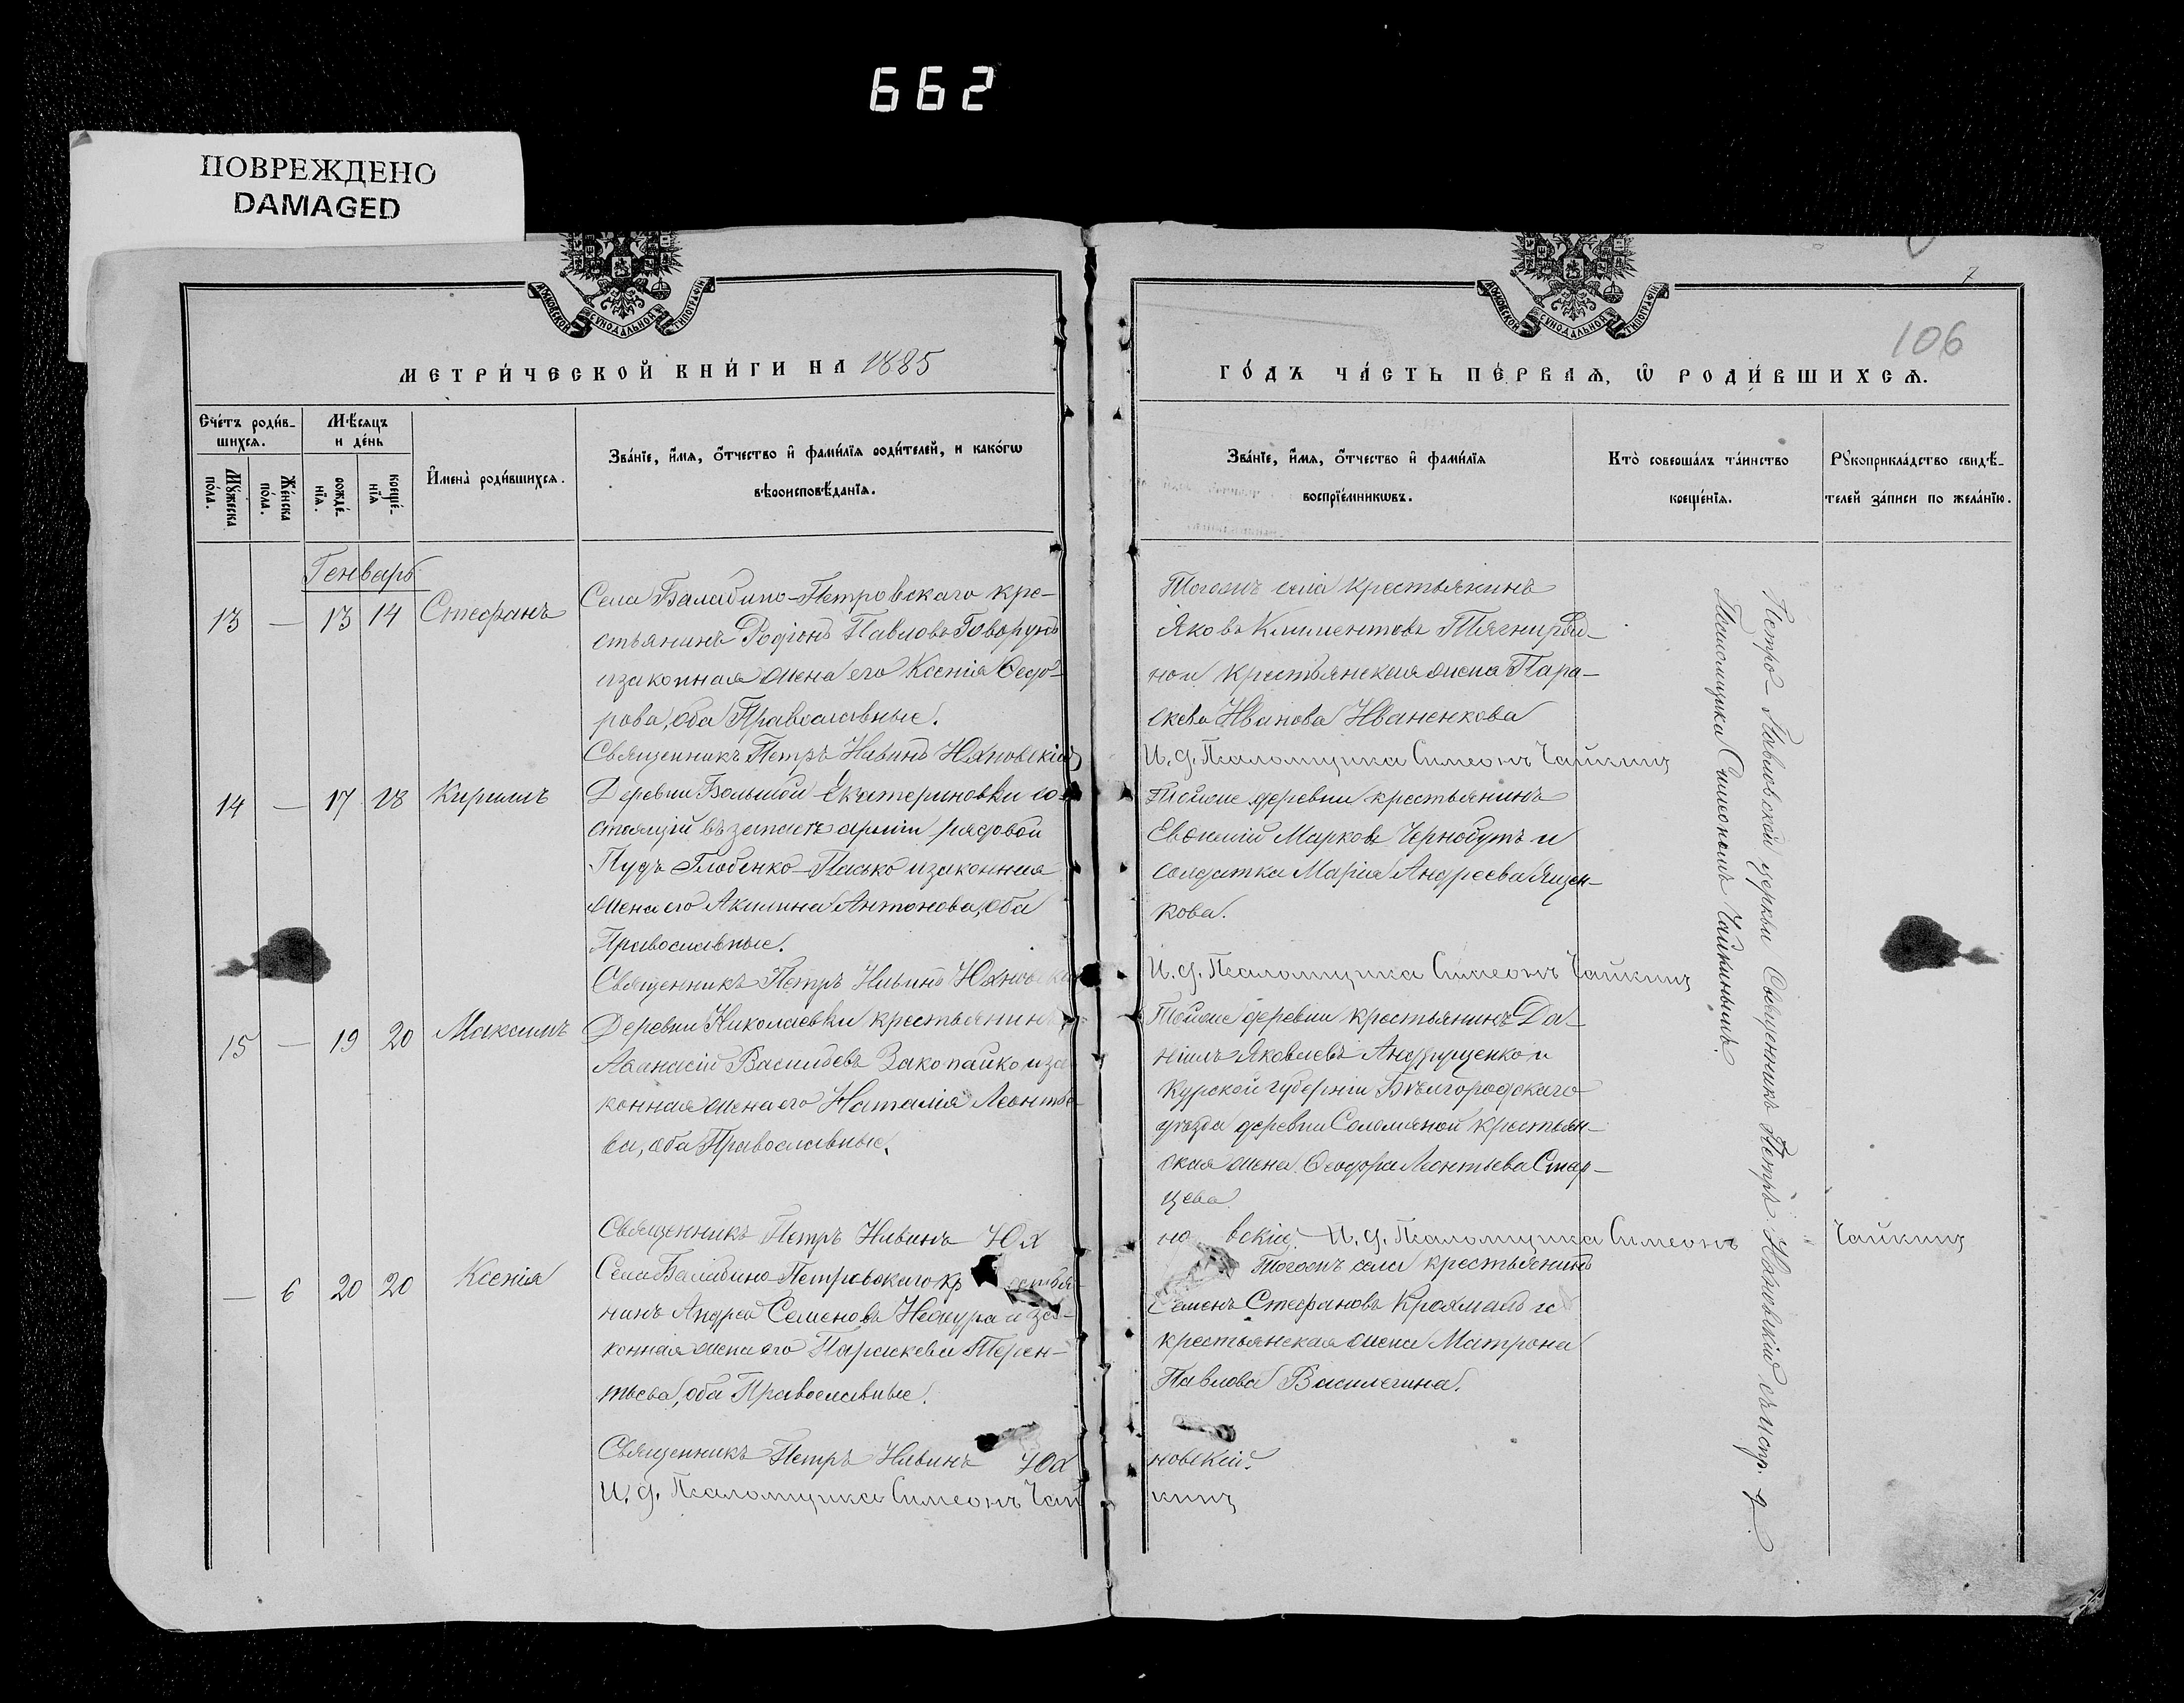 662
ПОВРЕЖДЕНО
DAMAGED
МОСКОВСКОЙ СѴНОДАЛЬНОЙ ТИПОГРАФІИ
МЕТРИ́ЧЕСКОЙ КНИ́ГИ НА 1885
Сче́тъ роди́в-
шихся.
Мѣ́сяцъ
и де́нь
Мꙋ́жеска
по́ла.
Же́нска
по́ла.
рожде́-
нїя.
креще́-
нїя
И҆мена̀ роди́вшихся.
Зва́нїе, и҆́мя, ѻ҆́тчество и҆ фами́лїя роди́телей, и како́гѡ
вѣроисповѣ́данїя.
Генварь
13 — 13 14 Стефанъ
Села Балабино-Петровскаго кре-
стьянинъ Родіонъ Павловъ Говорунъ
и законная жена его Ксенія Ѳедо-
рова, оба Православные.
Священникъ Петръ Ивинъ Юхновскій
14 — 17 18 Кириллъ
Деревни Большой Екатериновки со-
стоящій въ запасѣ арміи рядовой
Пудъ Глобенко-Пасько и законная
жена его Акилина Антонова, оба
Православные.
Священникъ Петръ Ивинъ
15 — 19 20 Максимъ
Деревни Николаевки крестьянинъ
Аѳанасій Васильевъ Закопайко и за
конная жена его Наталія Леонтье-
ва, оба Православные.
Священникъ Петръ Ивинъ Юх
— 6 20 20 Ксенія
Села Балабино-Петровскаго кр естья-
нинъ Андрей Семеновъ и за-
конная жена его Параскева Терен-
тьева, оба Православные.
Священникъ Петръ Ивинъ Юх
И. д. Псаломщика Симеонъ Чай
МОСКОВСКОЙ СѴНОДАЛЬНОЙ ТИПОГРАФІИ
106
ГО́ДЪ ЧА́СТЬ ПЕ́РВАЯ, Ѡ҆ РОДИ́ВШИХСЯ.
Зва́нїе, и҆́мя, ѻ҆́тчество и҆ фами́лїя
воспрїе́мникѡвъ.
Кто̀ соверша́лъ та́инство
креще́нїя.
Рꙋкоприкла́дство свидѣ́-
телей за́писи по жела́нїю.
Тогожъ села крестьянинъ
Яковъ Климентовъ Тягниряд-
ной крестьянская жена Пара-
скева Иванова Иваненкова
И. д. Псаломщика Симеонъ Чайкинъ
Тойже деревни крестьянинъ
Евѳимій Марковъ Чернобутъ и
солдатка Марія Андреева Ящен-
кова.
И. д. Псаломщика Симеонъ Чайкинъ
Тойже деревни крестьянинъ Да-
ніилъ Яковлевъ Андрущенко и
Курской губерніи Бѣлгородскаго
уѣзда деревни Соломяной крестьян-
ская жена Ѳеодора Леонтьева Стар-
цева
но вскій. И. д. Псаломщика Симеонъ Чайкинъ
Тогожъ села крестьянинъ
Семенъ Стефановъ Крохмаль и
крестьянская жена Матрона
Павлова Василегина.
новскій.
кинъ
Петро-Павловской церкви Священникъ Петръ съ испр. д.
Псаломщика Симеономъ Чайкинымъ.